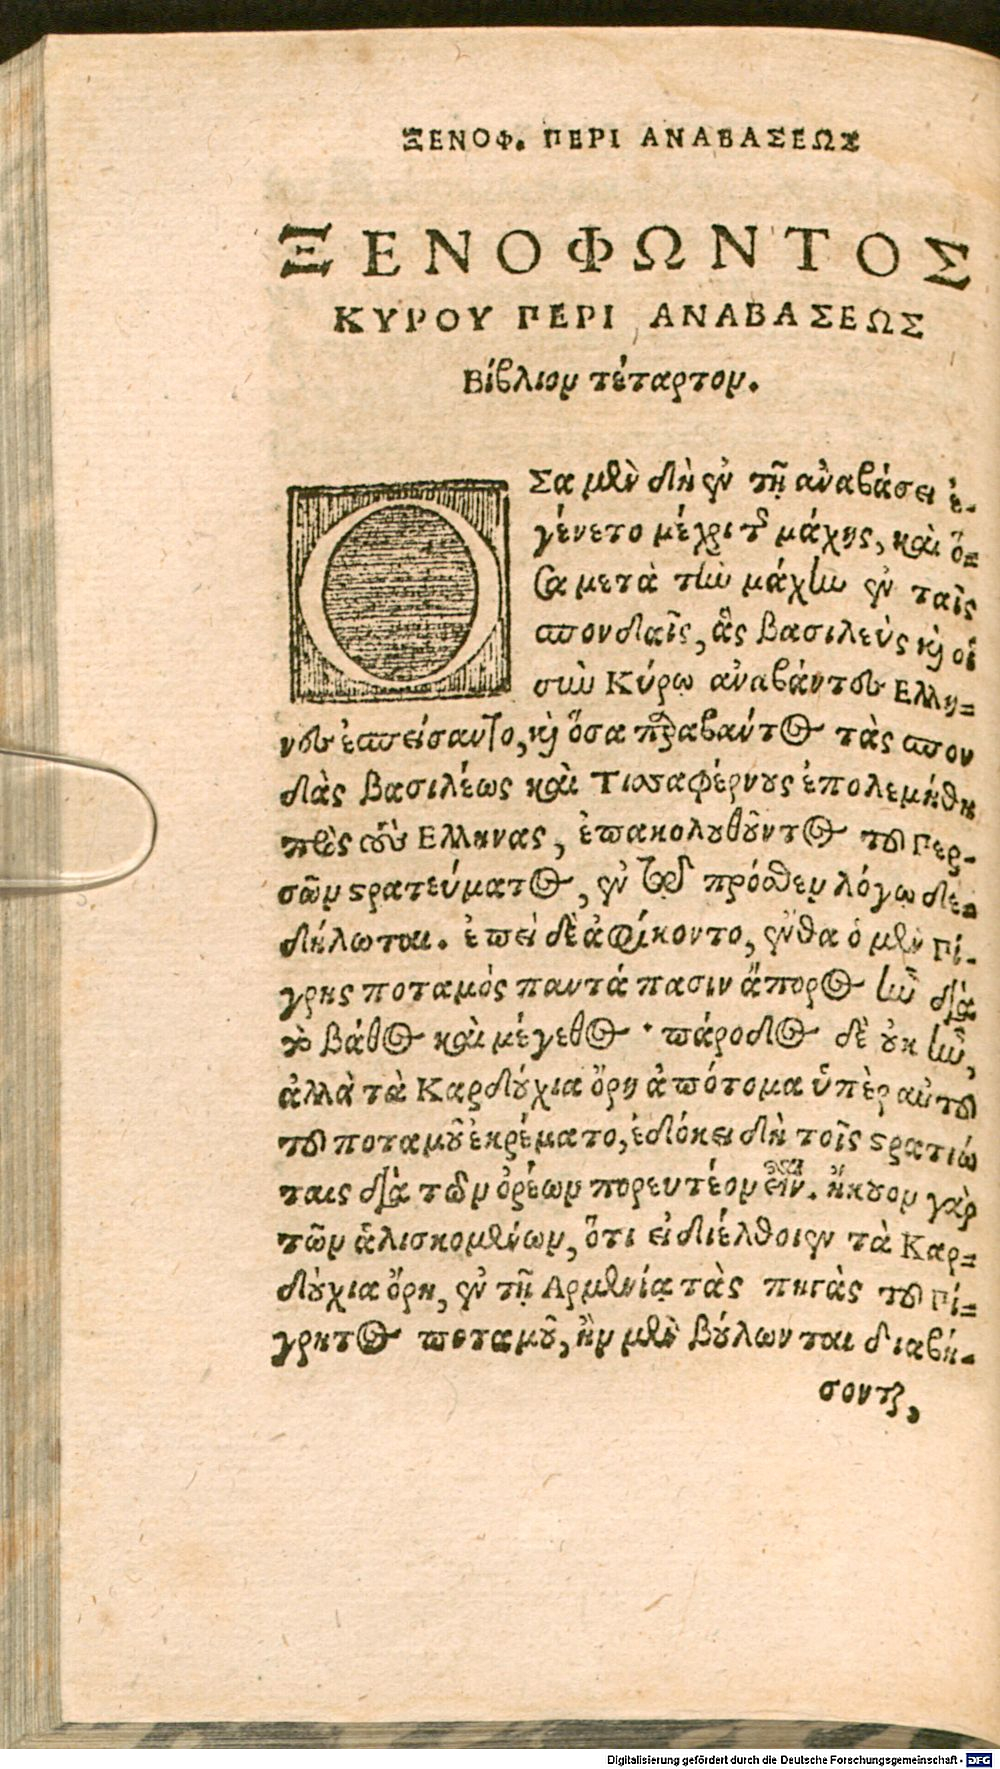 ΞΕΝΟΦ. ΠΕΡΙ ΑΝΑΒΑΣΕΩΣ
ΞΕΝΟΦΩΝΤΟΣ
ΚΥΡΟΥ ΠΕΡΙ ΑΝΑΒΑΣΕΩΣ
Βίβλιον τέταρτον.
ΟΣα μὲν δὴ ἐν τῇ ἀναβάσει ἐ-
γένετο μέχρι τῆς μάχης, καὶ ὅ-
σα μετὰ τὴν μάχην ἐν ταῖς
σπονδαῖς, ἃς βασιλεὺς καὶ οἱ
σὺν Κύρῳ ἀναβάντες Ελλη-
νες ἐσπείσαντο, καὶ ὅσα παραβάντος τὰς σπον
δὰς βασιλέως καὶ Τισσαφέρνους ἐπολεμήθη
πρὸς τοὺς Ελληνας, ἐπακολουθοῦντος τοῦ Περ-
σῶν στρατεύματος, ἐν τῷ πρόσθεν λόγῳ δε-
δήλωται. ἐπεὶ δὲ ἀφίκοντο, ἔνθα ὁ μὲν Τί-
γρης ποταμὸς παντάπασιν ἄπορος ἦν διὰ
τὸ βάθος καὶ μέγεθος· πάροδος δὲ οὐκ ἦν,
ἀλλὰ τὰ Καρδούχια ὄρη ἀπότομα ὑπὲρ αὐτοῦ
τοῦ ποταμοῦ ἐκρέματο, ἐδόκει δὴ τοῖς στρατιώ
ταις διὰ τῶν ὀρέων πορευτέον εἶναι. ἤκουον γὰρ
τῶν ἁλισκομένων, ὅτι εἰ διέλθοιεν τὰ Καρ-
δούχια ὄρη, ἐν τῇ Αρμενίᾳ τὰς πηγὰς τοῦ Τί-
γρητος ποταμοῦ, ἢν μὲν βούλωνται διαβή-
σονται,
Digitalisierung gefördert durch die Deutsche Forschungsgemeinschaft - DFG